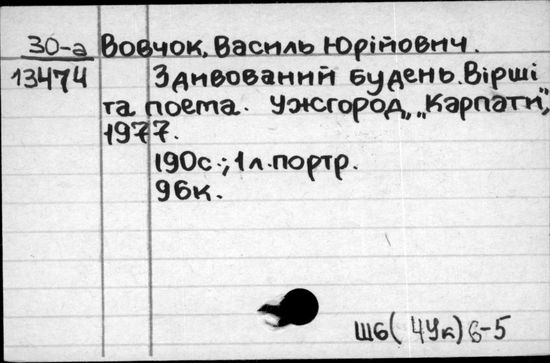 30-а Вовчок, Василь Юрійович.
13474 Здивований будень. Вірші
та поема. Ужгород, "Карпати",
1977.
190с.; 1 л. портр.
96к.
Ш6(4Ук)6-5